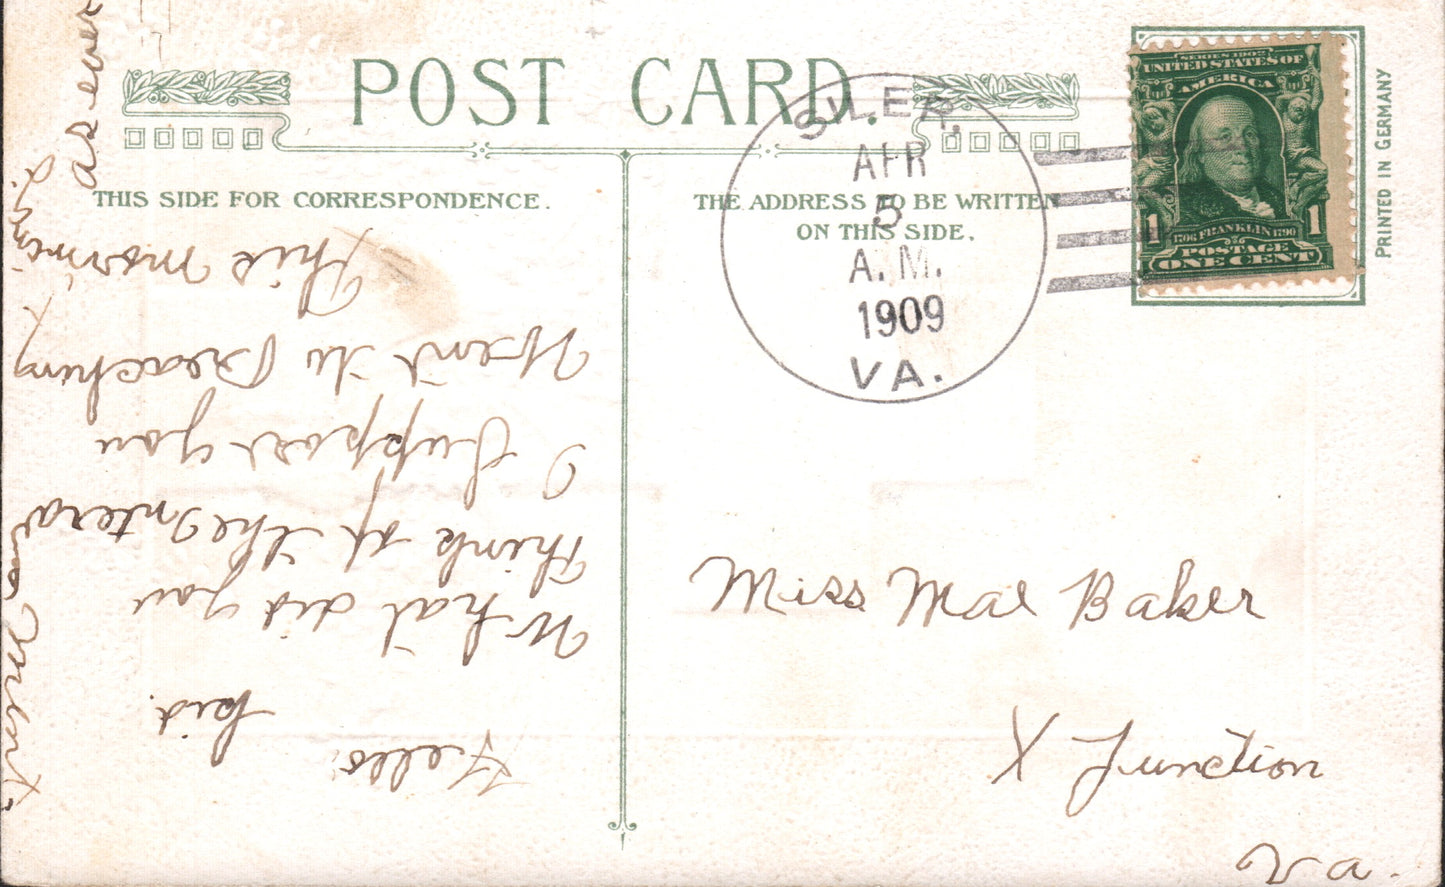 POST CARD.
THIS SIDE FOR CORRESPONDENCE.
THE ADDRESS TO BE WRITTEN
ON THIS SIDE.
SILER,
APR
5
A.M.
1909
VA.
SERIES 1902
UNITED STATES OF
AMERICA
1 1
1706 FRANKLIN 1790
POSTAGE
ONE CENT
PRINTED IN GERMANY
Miss Mae Baker
X Junction
Va.
Hello
kid.
What did you
think of the Entera
ment
I suppose you
Went to Preaching
this morning
as ever